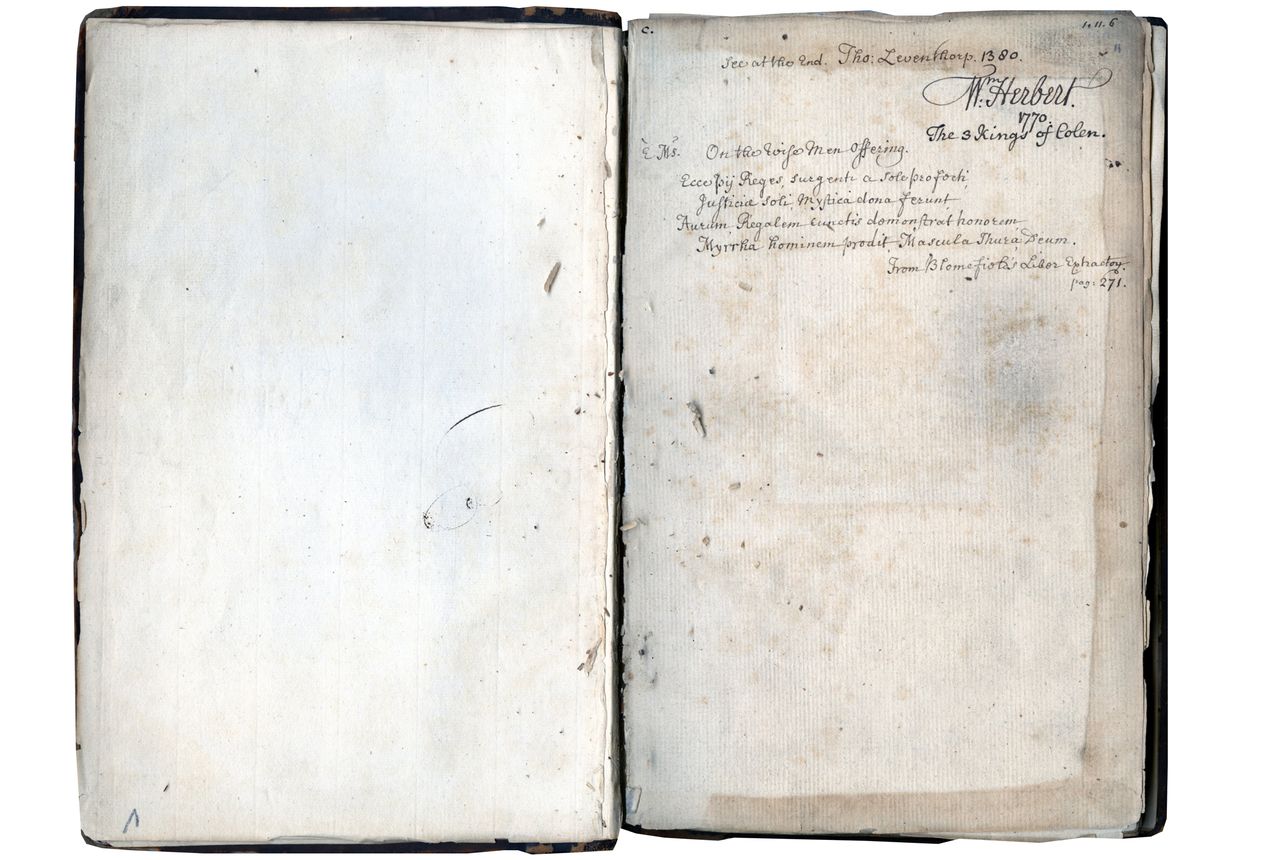 c.
1. 11. 6
See at the End. Tho: Leventhorp. 1380.
Wm. Herbert.
1770.
The 3 Kings of Colen.
E Ms. On the Wise Men Offering.
Ecce pij Reges, surgenti a Sole profecti,
Justiciæ soli, Mystica dona ferunt
Aurum Regalem cunctis demonstrat honorem
Myrrha hominem prodit Mascula Thura Deum.
From Blomefield's Liber Extractor.
pag: 271.